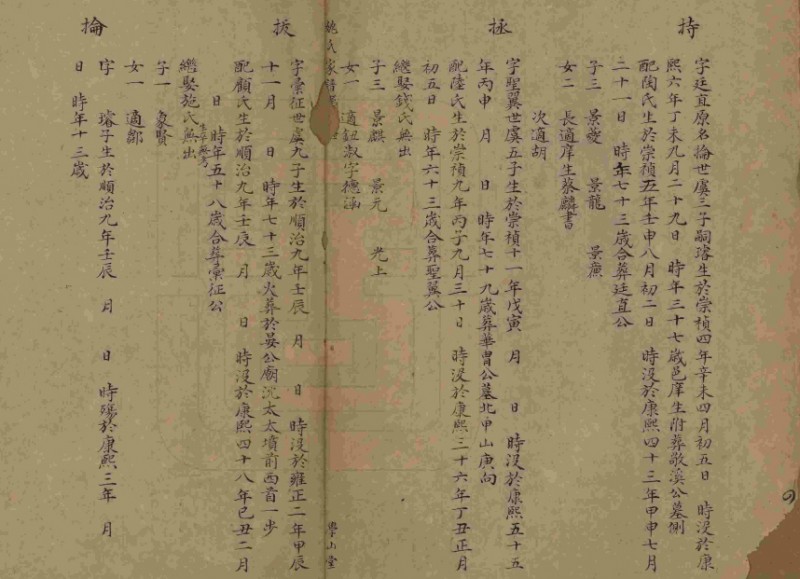 持
字廷直原名掄世虞三子嗣璿生於崇禎四年辛未四月初五日 時沒於康
熙六年丁未九月二十九日 時年三十七歲邑庠生附葬敬溪公墓側
配陶氏生於崇禎五年壬申八月初二日 時沒於康熙四十三年甲申七月
二十一日 時年七十三歲合葬廷直公
子三 景夔 景龍 景
女二 長適庠生蔡麟書
次適胡
拯
字聖翼世虞五子生於崇禎十一年戊寅 月 日 時沒於康熙五十五
年丙申 月 日 時年七十九歲葬華曾公墓北甲山庚向
配陸氏生於崇禎九年丙子九月三十日 時沒於康熙三十六年丁丑正月
初五日 時年六十三歲合葬聖翼公
繼娶錢氏無出
子三 景麒 景元 光上
女一 適鈕淑字德涵
魏氏家譜
學山堂
拔
字彙征世虞九子生於順治九年壬辰 月 日 時沒於雍正二年甲辰
十一月 日 時年七十三歲火葬於晏公廟沈太太墳前西首一步
配顧氏生於順治九年壬辰 月 日 時沒於康熙四十八年己丑二月
日 時年五十八歲合葬彙征公
繼娶施氏無出
子一 賢
女一 適鄒
掄
字 璿子生於順治九年壬辰 月 日 時殤於康熙三年 月
日 時年十三歲